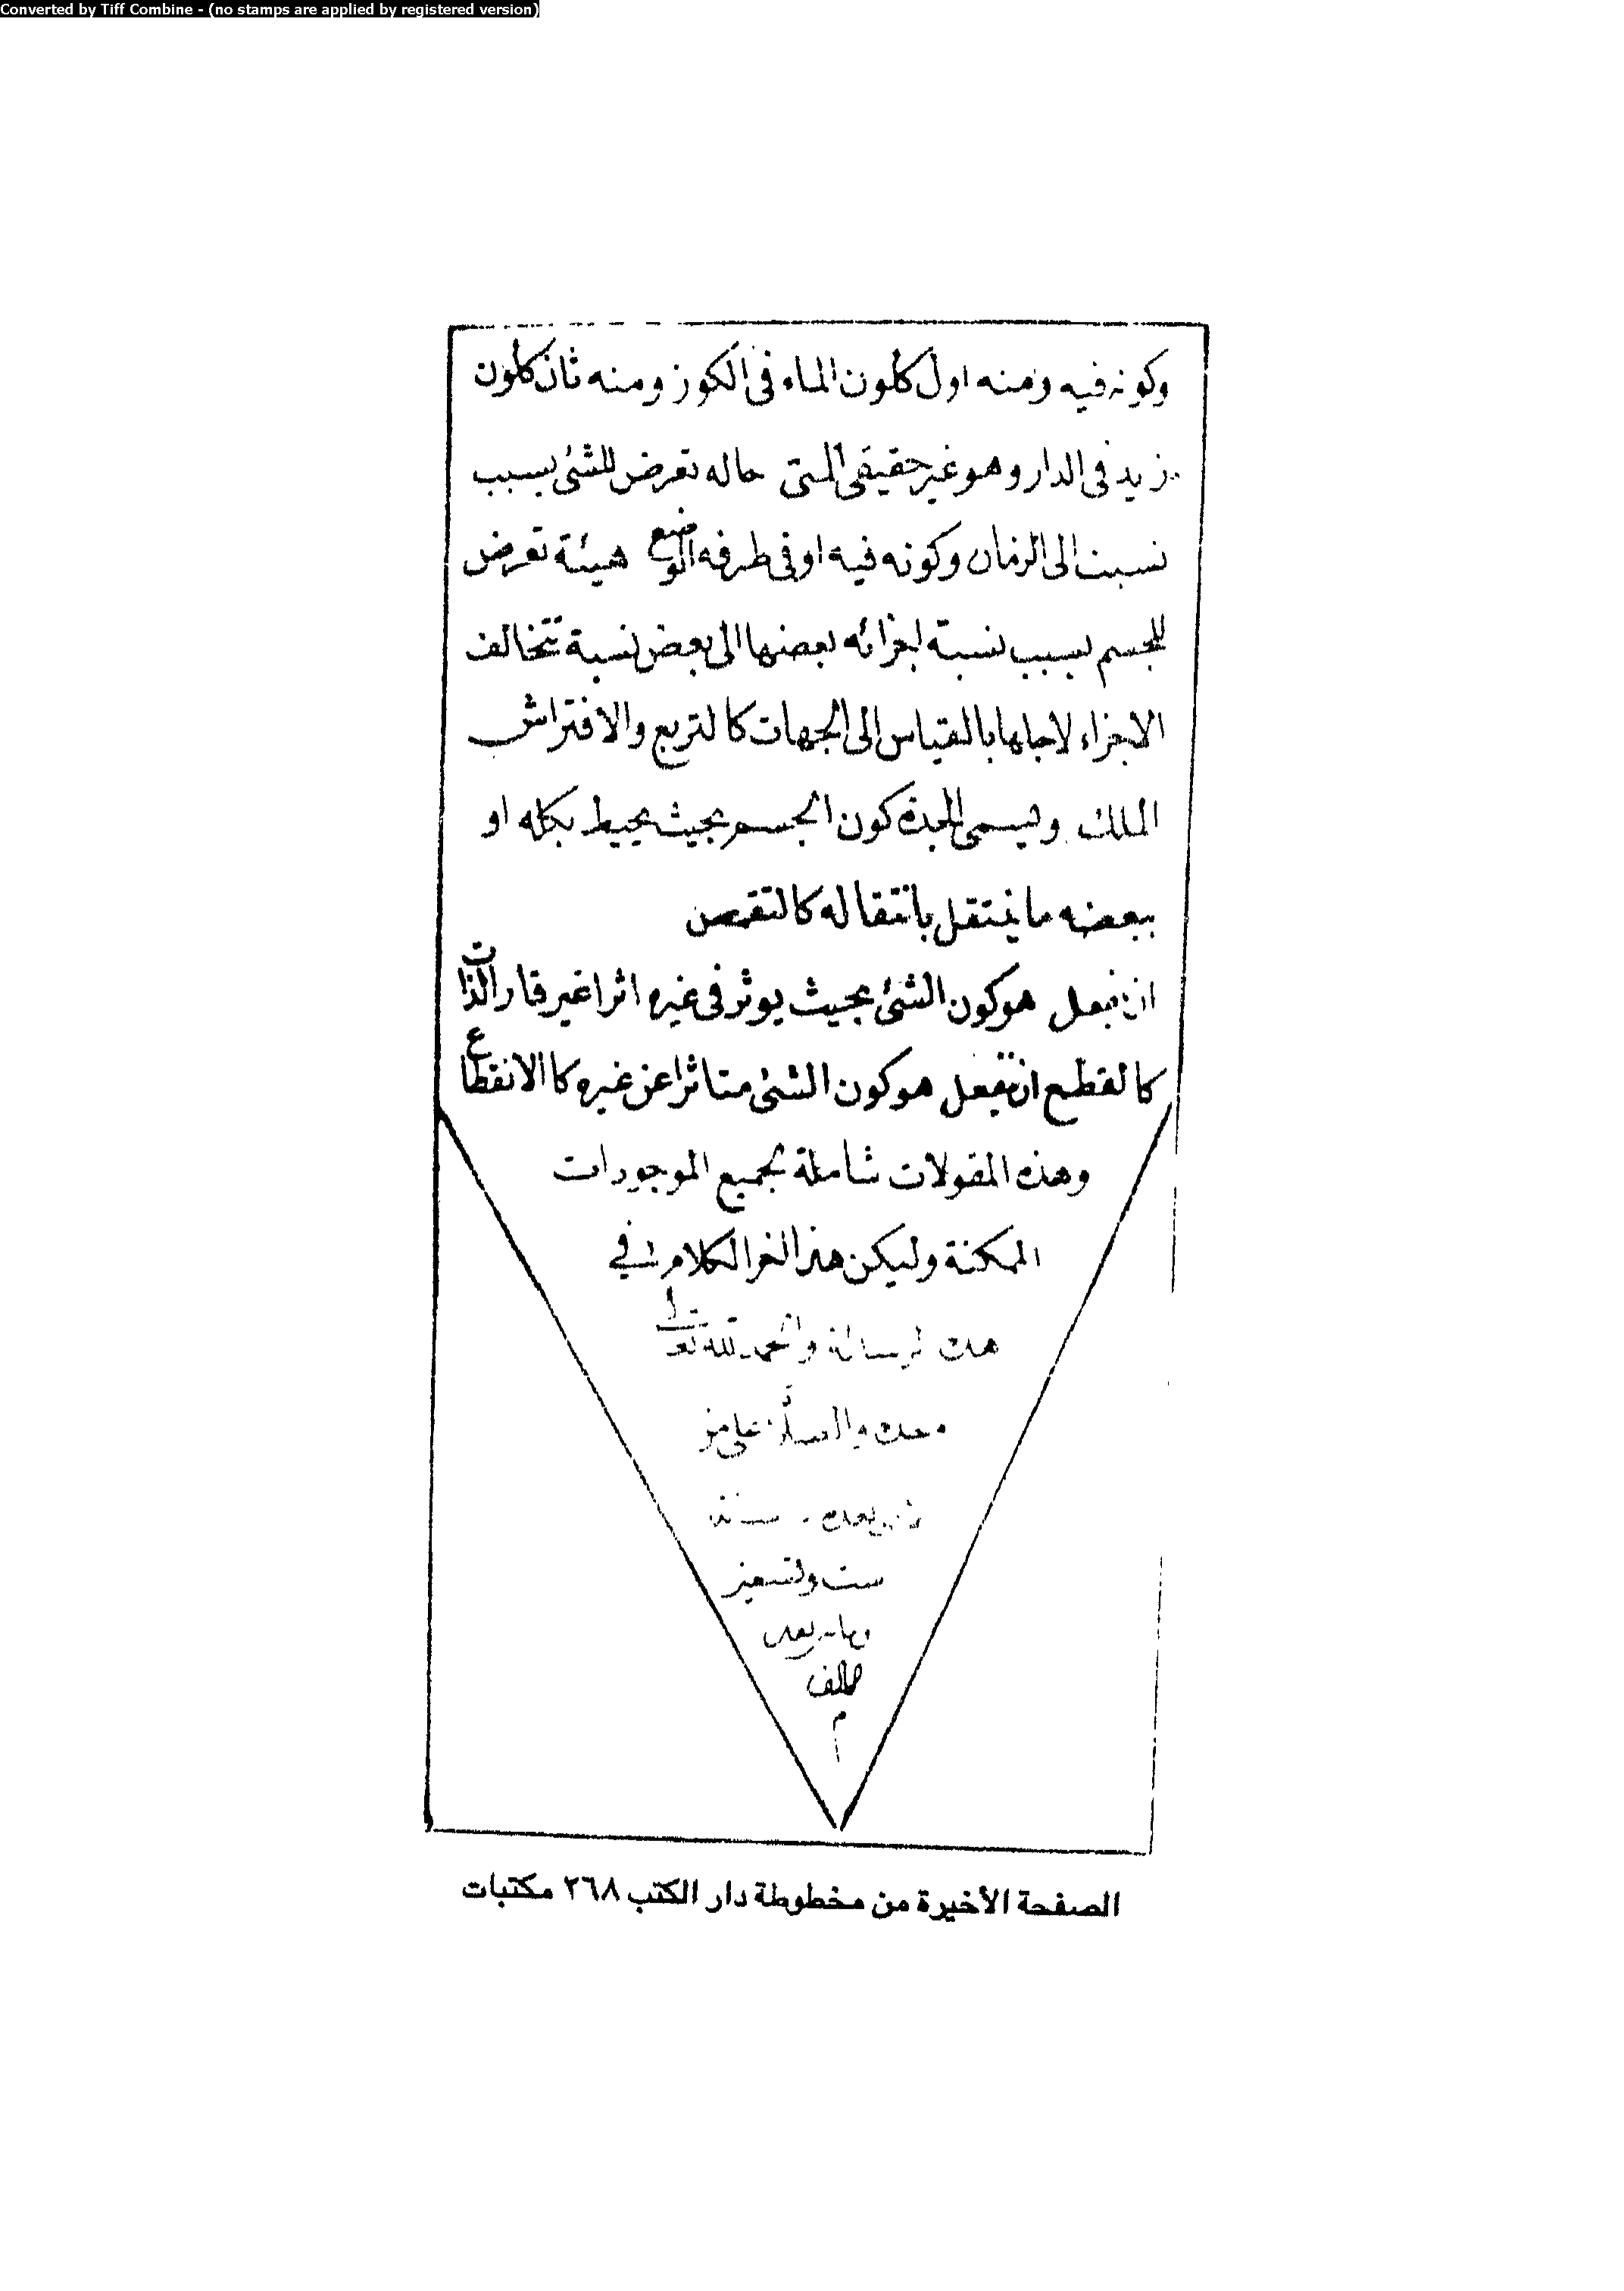 Converted by Tiff Combine - (no stamps are applied by registered version)
وكونه فيه ومنه اول ككون الماء فى الكوز ومنه ثان ككون
زيد فى الدار وهو غير حقيقى المتى حاله تعرض للشئ بسبب
نسبت الى الزمان وكونه فيه او فى طرفه الوضع هيئة تعرض
للجسم بسبب نسبة اجزائه بعضها الى بعض نسبة تتخالف
الاجزاء لاجلها بالقياس الى الجهات كالتربع والافتراش
الملك ويسمى الجدة كون الجسم بحيث يحيط بكله او
ببعضه ما ينتقل بانتقاله كالتقمص
ان يفعل هو كون الشئ بحيث يوثر فى غيره اثرا غير قار الذات
كالقطع ان ينفعل هو كون الشئ متاثرا عن غيره كا الانقطاع
وهذه المقولات شاملة لجميع الموجودات
الممكنة وليكن هذا اخر الكلام في
هذه الرسالة والحمد لله تعالى
وحده والصلاة على من
بعده سنة
ست وتسعين
بعد
الف
م
الصفحة الأخيرة من مخطوطة دار الكتب ٢٦٨ مكتبات